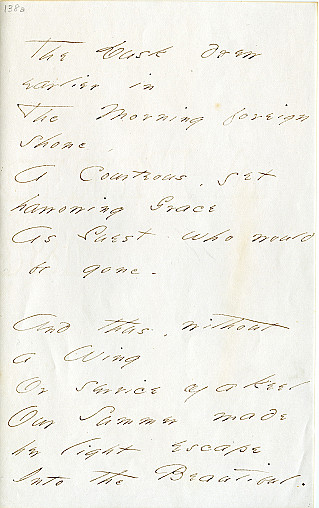 138a
The Dusk drew
earlier in
The Morning foreign
shone
A Courteous, yet
harrowing Grace
As Guest who would
be gone -
And thus, without
a Wing
Or service of a keel
Our Summer made
her light escape
Into the Beautiful.